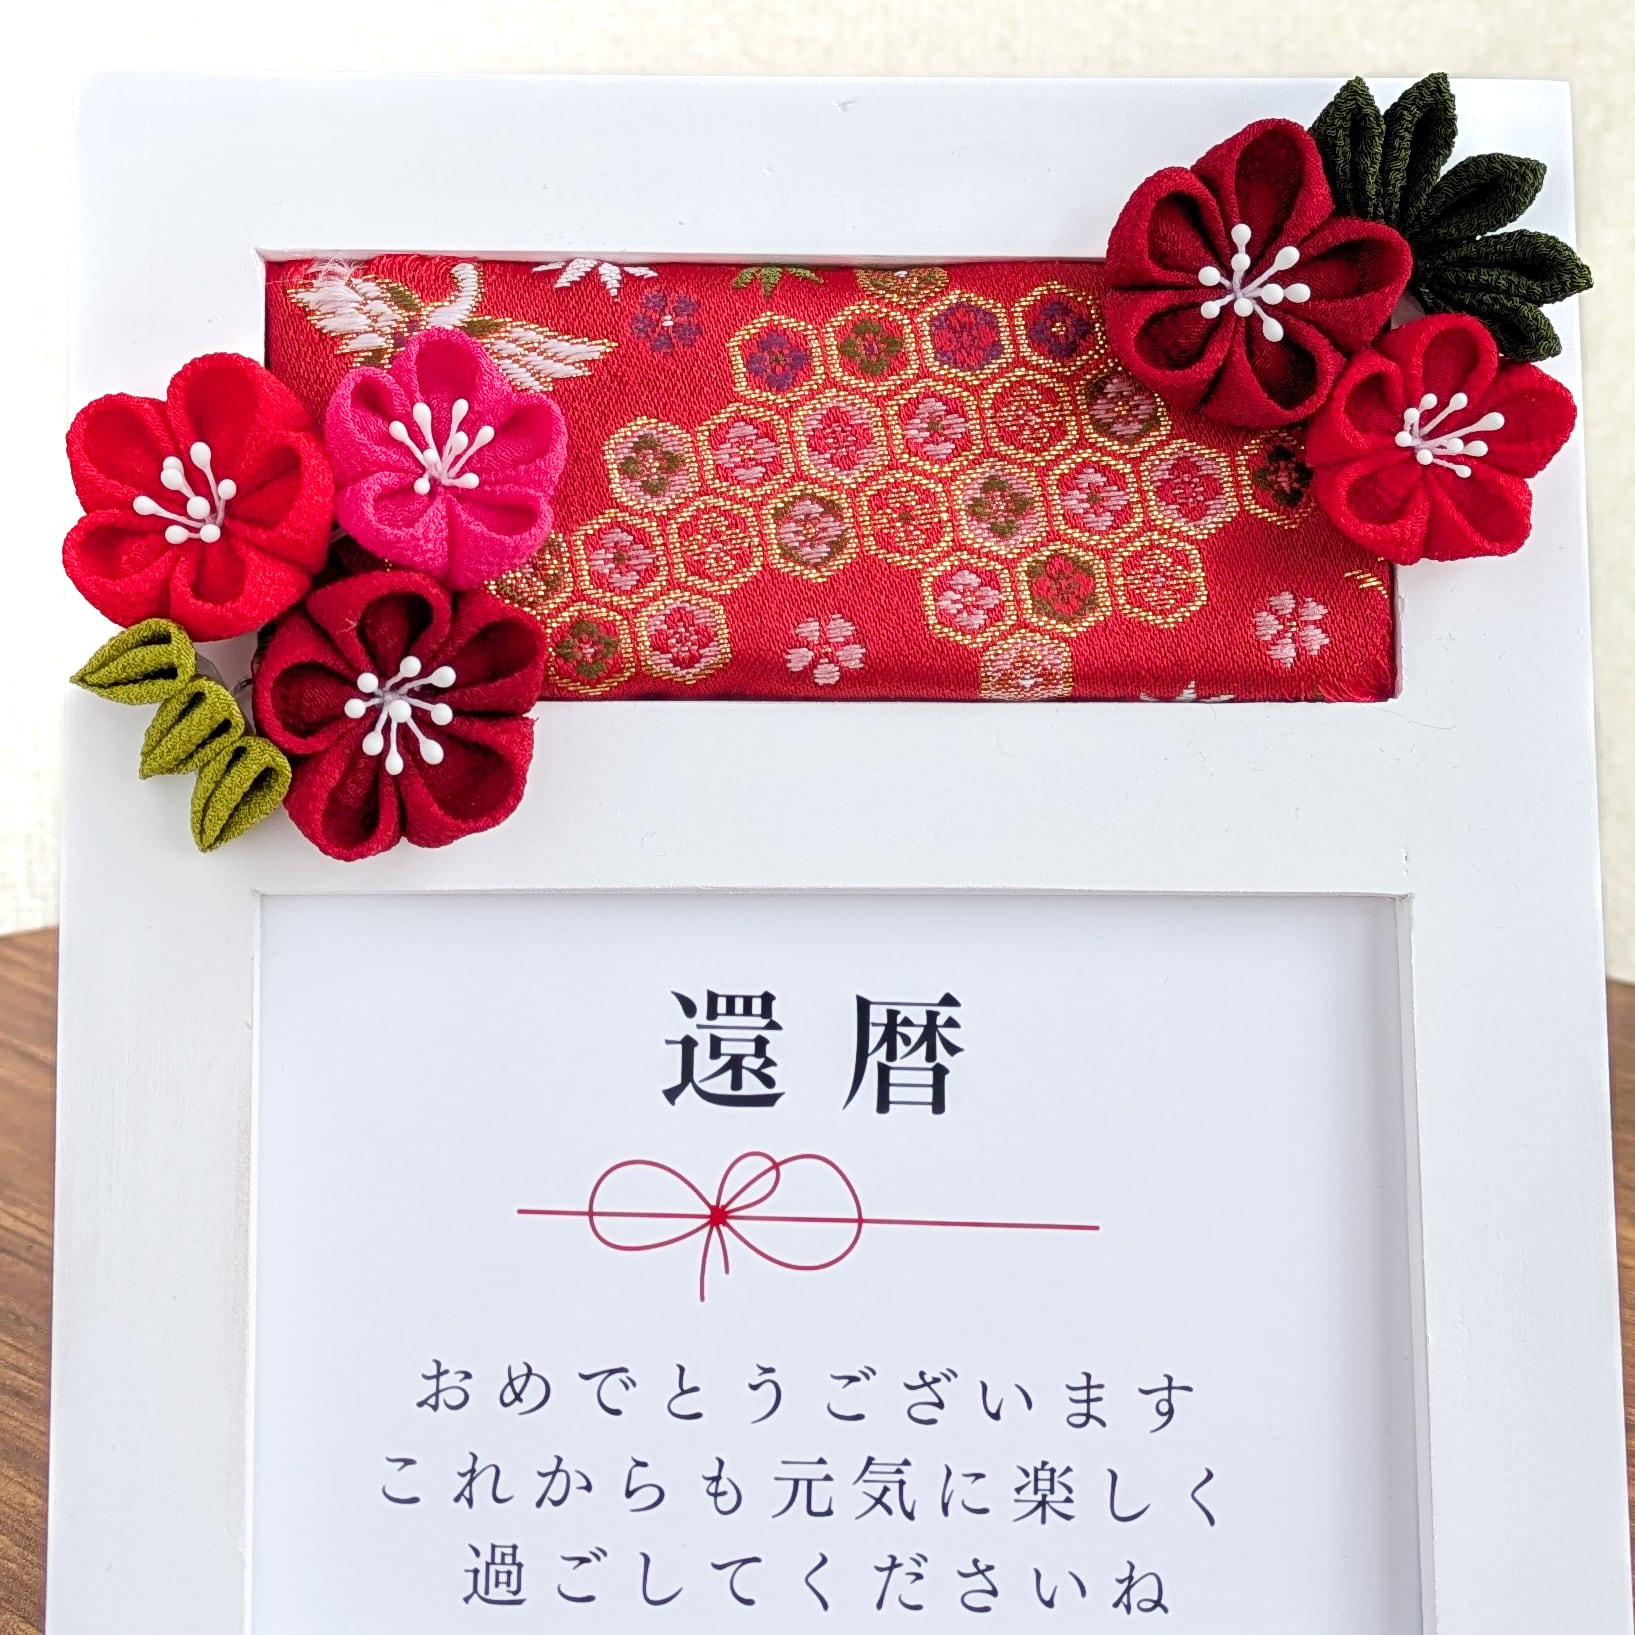 還暦
おめでとうございます
これからも元気に楽しく
過ごしてくださいね